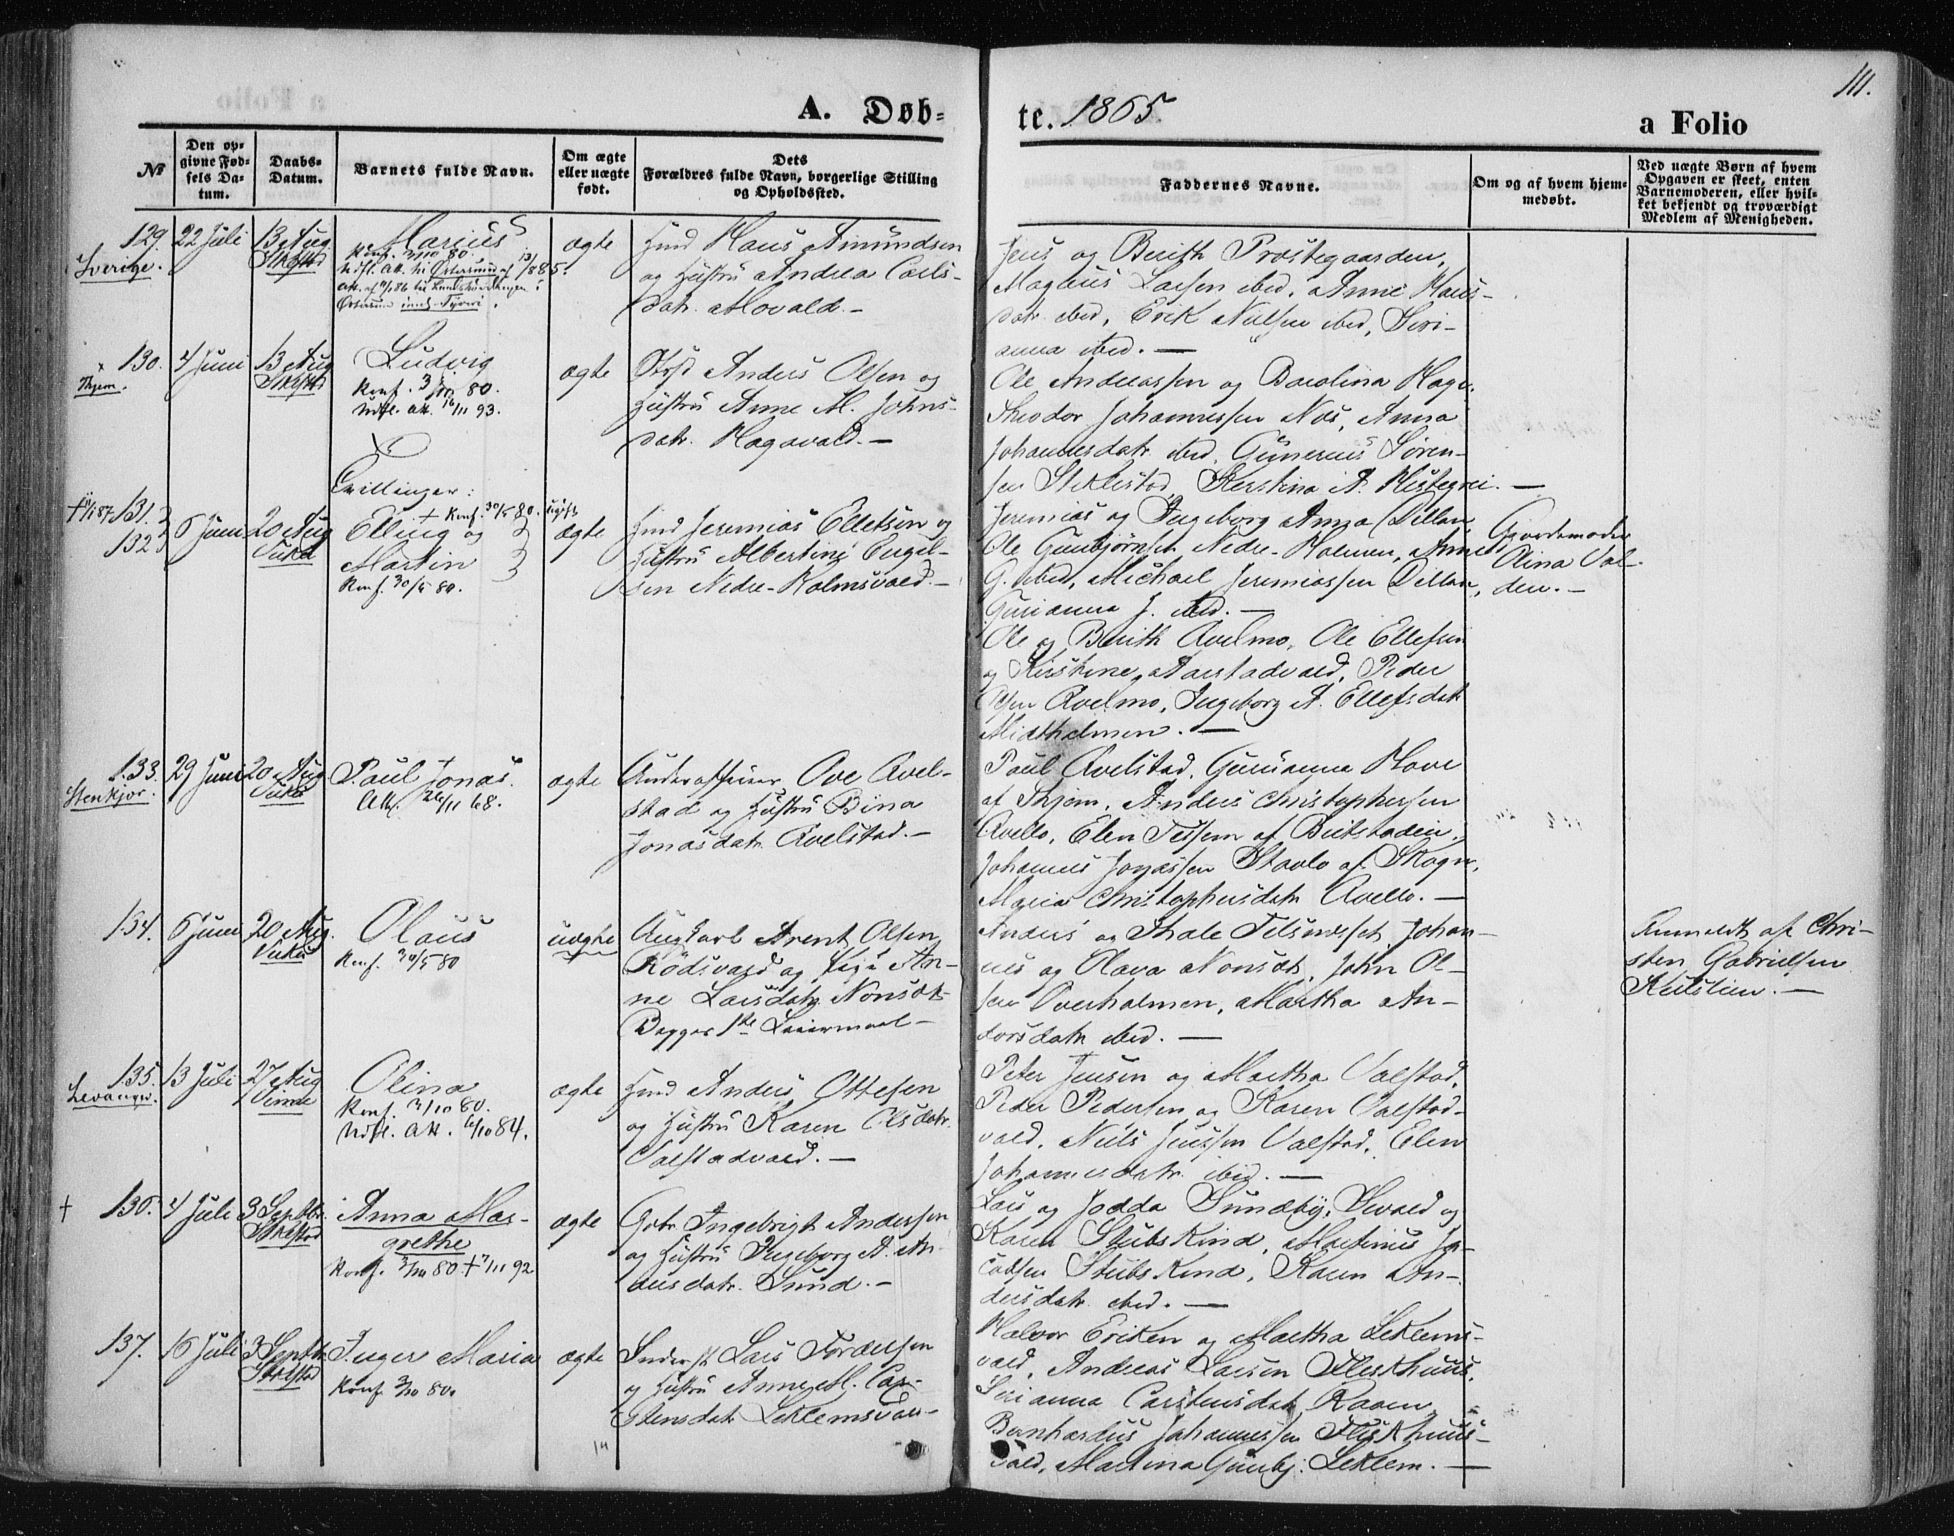 111.
A. Døb=
te. 1865.
a Folio
№
Den op=
givne Fød=
sels Da=
tum.
Daabs=
Datum.
Barnets fulde Navn.
Om ægte
eller uægte
født.
Dets
Forældres fulde Navn, borgerlige Stilling
og Opholdssted.
Faddernes Navne.
Om og af hvem hjem=
medøbt.
Ved uægte Børn af hvem
Opgaven er skeet, enten
Barnemoderen, eller hvil=
ket bekjendt og troværdigt
Medlem af Menigheden.
129.
Sverige.
22 Juli
13 Aug
Marius
Konf. 3/10 80.
ægte
Hmd Hans Amundsen
og Hustru Andrea Carls-
datr. Movald. -
Jens og Berith Præstegaarden,
Magnus Larsen ibid. Anne Hans-
datr. ibid, Erik Nielsen ibid, Seri-
anna ibid. -
130.
4 Juni
13 Aug
Ludvig
Konf. 3/10 80.
Udfl. att. 16/11 93.
ægte
Anders Olsen og
Hustru Anne M. Johns-
datr. Hagavald. -
Ole Andreassen og Barolina Haga.
Theodor Johannessen Næs, Anna
Johannesdatr ibid, Gunerius Søren-
sen Stiklestad,
131.
132.
6 Juni
20 Aug
Vuka
Tvillinger:
Elling og
Martin
Konf. 30/5 80.
ægte
Hmd Jeremias Ellefsen og
Hustru Albertine Engel-
sen Nedre-Holmsvald. -
Jeremias og Ingeborg Anna Dillan,
Ole Gunbjørnsen Nedre-Holmen, Anne
G. ibid, Michael Jeremiassen Dillan,
Gurianna J. ibid. -
Ole og Berith Avelmo, Ole Ellefsen
og Kirstine Aarstadvald, Peder
Olsen Avelmo, Ingeborg A. Ellefsdatr
Midtholmen. -
Gjordemoder
Olina Val-
den. -
133.
Stenkjær.
29 Juni
20 Aug
Vuka
Paul Jonas.
Att. 26/11 68.
ægte
Underofficier Ove Avel-
stad og Hustru Bina
Jonasdatr. Avelstad. -
Paul Avelstad, Gurianna Hove
af Skjem, Anders Christophersen
Avello, Elen Tessem af Beitstaden,
Johannes Jonassen Stavlo af Skogn,
Maria Christophersdatr Avello. -
134.
6 Juni
20 Aug.
Vuka
Olaus
Konf. 30/5 80
uægte
Ungkarl Arent Olsen
Rødsvald og Pige An-
ne Larsdatr Nonsæt
Begges 1ste Leiermaal -
Anders og Thale Tilsundset, Johan-
nes og Olava Nonsæt, John Ol-
sen Overholmen, Martha An-
dersdatr ibid. -
Anmeldt af Chri-
sten Gabrielsen
135.
Levanger.
13 Juli
27 Aug
Vinne
Olina
Konf. 3/10 80.
Udfl. Att. 6/10 84.
ægte
Hmd Anders Ottesen
og Hustru Karen Olsdatr.
Valstadvald. -
Peter Jensen og Martha Valstad,
Peder Pedersen og Karen Valstad-
vald, Niels Jensen Valstad, Elen
Johannesdatr ibid. -
†
136.
4 Juli
3 Septbr.
Anna Mar-
grethe
Konf. 3/10 80 † 7/11 92
ægte
Gbr Ingebrigt Andersen
og Hustru Ingeborg A. An-
dersdatr. Sund. -
Lars og Jodda Sundby, Sivald og
Karen Stubskind, Martinus Ja-
cobsen Stubskind, Karen An-
dersdatr ibid. -
137.
16 Juli
3 Septbr
Inger Maria
Konf. 3/10 80.
ægte
Inderst Lars Tordersen
og Hustru Anne M. Car-
stensdatr. Leklemsvald -
Halvor Eriken og Martha Leklems-
vald, Andreas Larsen Fleskhuus,
Serianna Carstensdatr Raaen,
Bernhardus Johannessen Fleskhuus-
vald, Martina Gunbj: Leklem. -